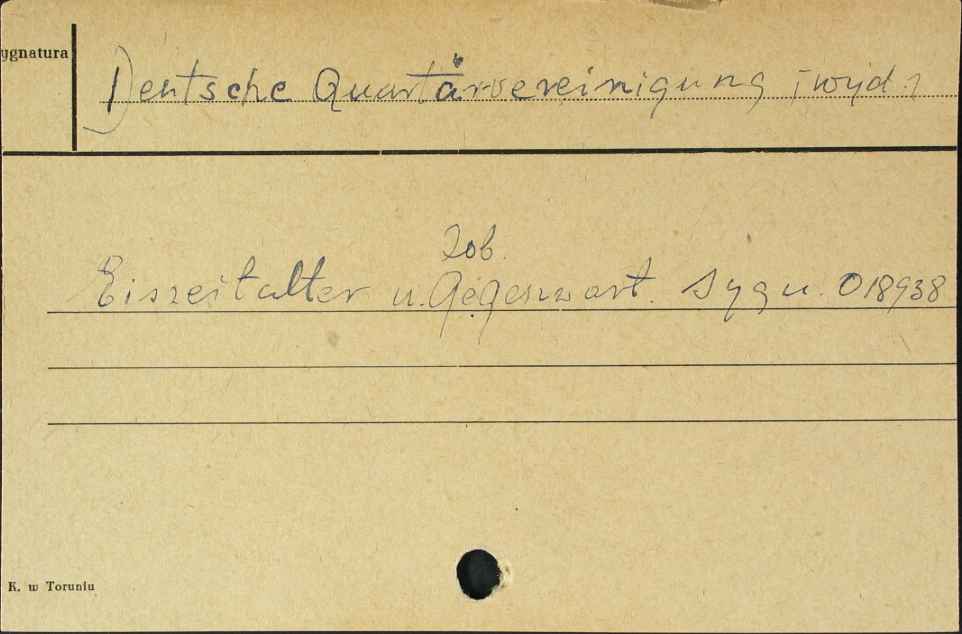 ygnatura
Deutsche Quartärvereinigung [wyd.]
Zob.
Eiszeitalter u. Gegenwart. Sygn. 018938
K. w Toruniu